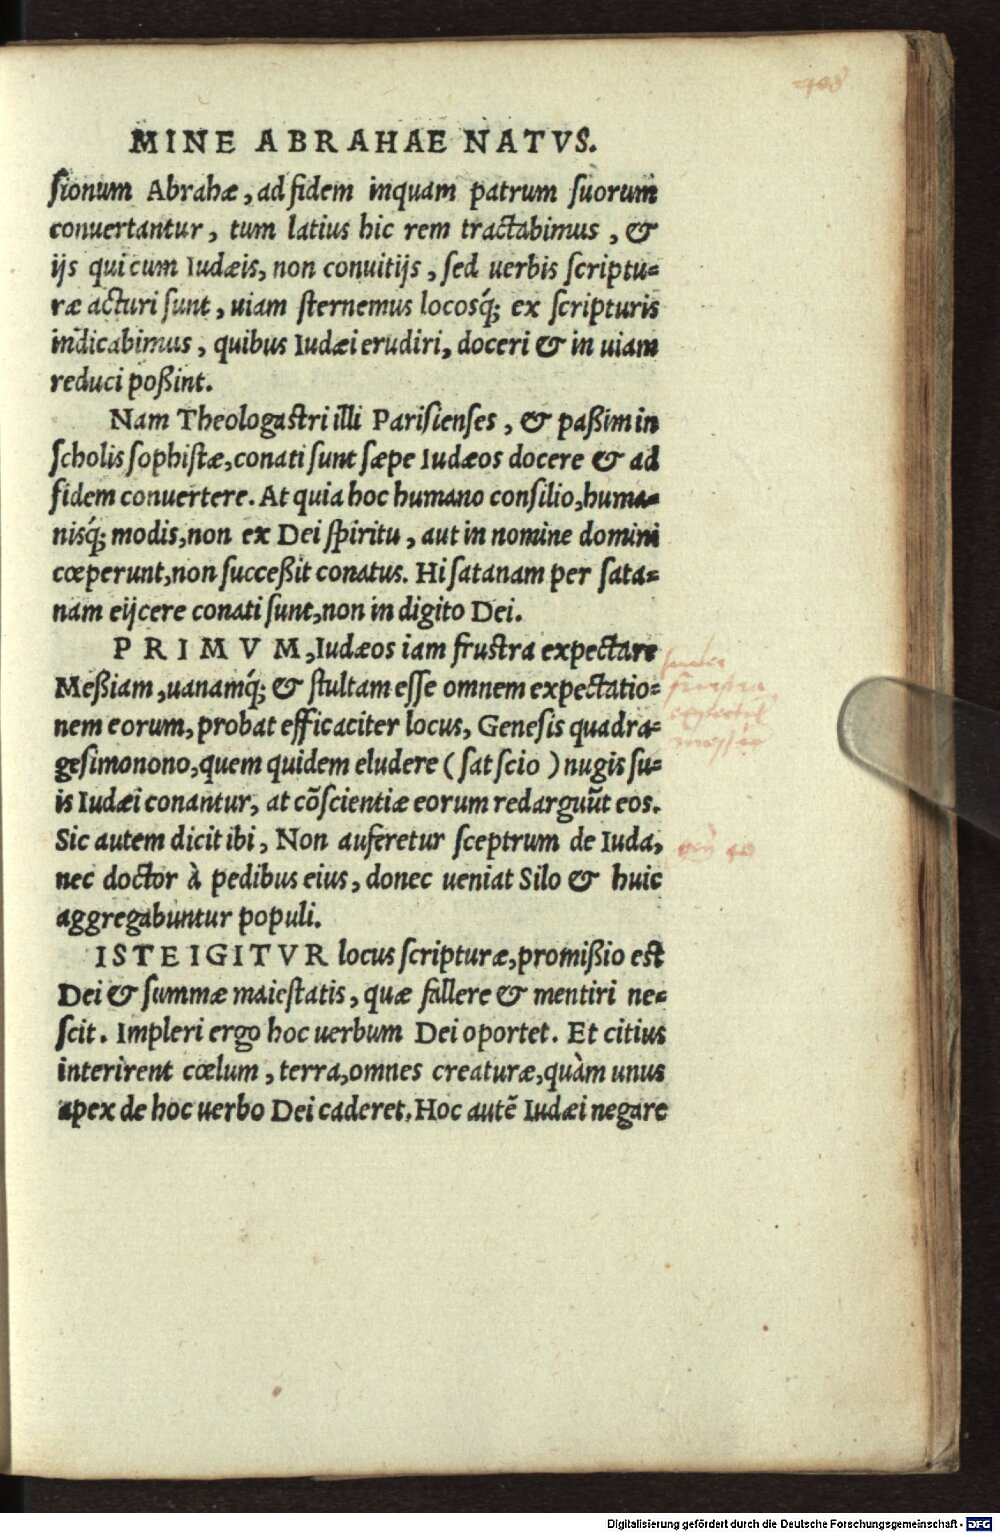 408
MINE ABRAHAE NATVS.
sionum Abrahæ, ad fidem inquam patrum suorum
conuertantur, tum latius hic rem tractabimus, &
ijs qui cum Iudæis, non conuitijs, sed uerbis scriptu=
ræ acturi sunt, uiam sternemus locosq́; ex scripturis
indicabimus, quibus Iudæi erudiri, doceri & in uiam
reduci poßint.
Nam Theologastri illi Parisienses, & paßim in
scholis sophistæ, conati sunt sæpe Iudæos docere & ad
fidem conuertere. At quia hoc humano consilio, huma=
nisq́; modis, non ex Dei spiritu, aut in nomine domini
cœperunt, non succeßit conatus. Hi satanam per sata=
nam eijcere conati sunt, non in digito Dei.
PRIMVM, Iudæos iam frustra expectare
Meßiam, uanamq́; & stultam esse omnem expectatio=
nem eorum, probat efficaciter locus, Genesis quadra=
gesimonono, quem quidem eludere (sat scio) nugis su=
is Iudæi conantur, at cõscientiæ eorum redarguũt eos.
Sic autem dicit ibi, Non auferetur sceptrum de Iuda,
nec doctor à pedibus eius, donec ueniat Silo & huic
aggregabuntur populi.
ISTE IGITVR locus scripturæ, promißio est
Dei & summæ maiestatis, quæ fallere & mentiri ne=
scit. Impleri ergo hoc uerbum Dei oportet. Et citius
interirent cœlum, terra, omnes creaturæ, quàm unus
apex de hoc uerbo Dei caderet. Hoc autẽ Iudæi negare
Digitalisierung gefördert durch die Deutsche Forschungsgemeinschaft - DFG